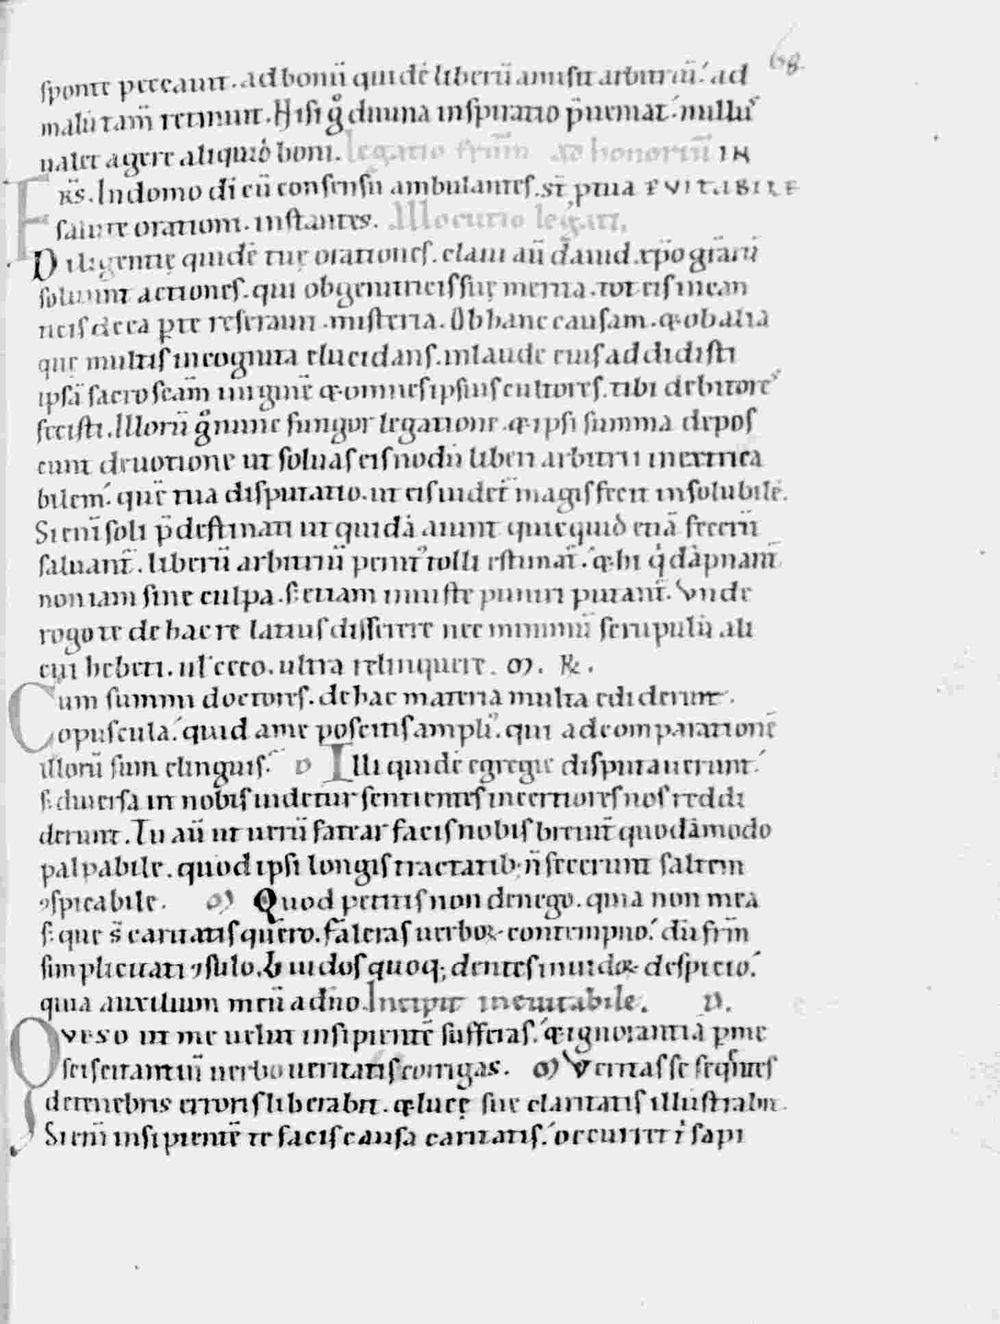 68.
sponte peccauit. ad bonū quidē liberū amisit arbitriū. ad
malū tam̄ retinuit. Nisi gͦ diuina inspiratio p̄ueniat. nullus
ualet agere aliquid boni. legatio fr̄m ad honoriū IN
FR̄S. In domo di cū consensu ambulantes. st̄ EVITABILE
salute orationi. instantes. Allocutio legati,
Diligentię quidē tuę orationes. claui aū dauid. xp̄o gr̄arū
soluunt actiones. qui ob genitricis suę merita. tot eis in ean
neis de ea p te reserauit. misteria. Ob hanc causam. & ob alia
que multis incognita elucidans. in laude eius addidisti
ipsā sacroscām uirginē & omnes ipsius cultores. tibi debitores
fecisti. Illorū gͦ nunc fungor legatione. & ipsi summa depos
cunt deuotione ut soluas eis nodū liberi arbitrii inextrica
bilem. quē tua disputatio. ut eis uidet̄ magis fecit insolubilē.
Si eni soli p̄destinati ut quidā aiunt quicquid etiā fecerīt
saluant̄. liberū arbitriū penit' tolli estimat̄. & hi q̇ dāpnant̄
non iam sine culpa. s; etiam iniuste puniri putant̄. Vnde
rogo te de hac re latius disserere nec minimū scrupulū ali
cui hebeti. uel ceco. ultra relinquere. M. R̄.
Cum summi doctores. de hac materia multa ediderint.
opuscula. quid a me poscitis ampli'. qui ad comparationē
illorū sum elinguis. D Illi quidē egregie disputauerunt.
s; diuersa in nobis uidetur sentientes incertiores nos reddi
derunt. Tu aū ut uerū fatear facis nobis breuit̄ quodāmodo
palpabile. quod ipsi longis tractatib; n̄ fecerunt saltem
ꝯspicabile. M Quod petitis non denego. quia non mea
s; que s̄ caritatis quero. faleras uerboꝝ contempno. dū fr̄m
simplicitati ꝯsulo. Liuidos quoq; dentes inuidoꝝ despicio.
quia auxilium meū a dn̄o. Incipit ineuitabile. D.
QVESO ut me uelut insipientē sufferas. & ignorantiā p me
sciscitantiū uerbo ueritatis corrigas. M Veritas se seq̄ntes
de tenebris erroris liberabit. & luce suę claritatis illustrabit.
Si eni insipientē te facis causa caritatis. occurrere sapi